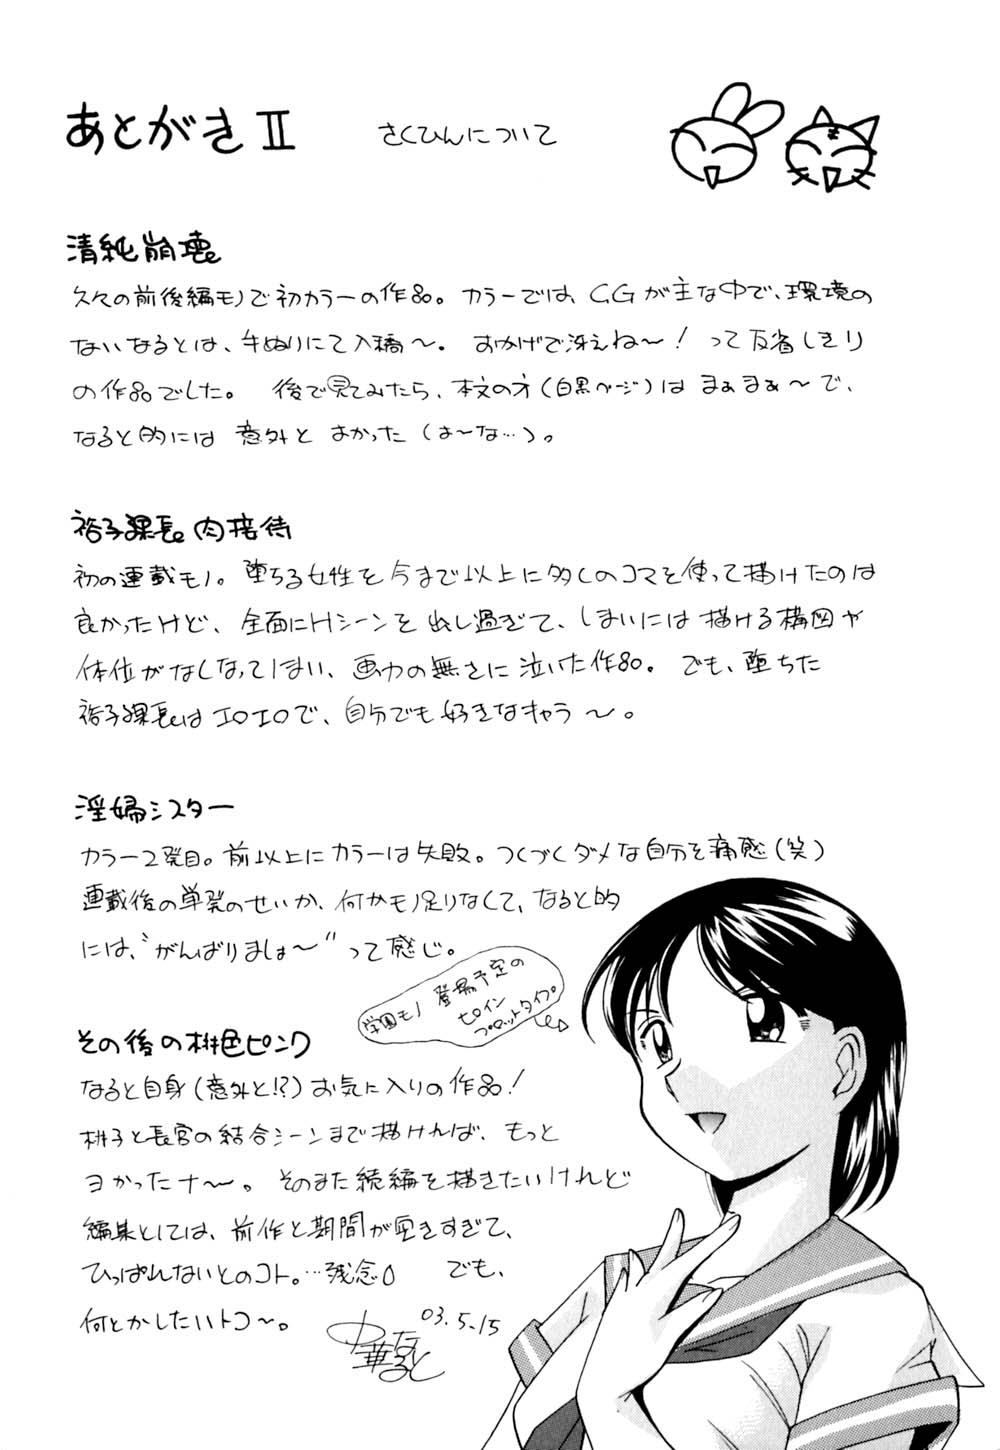 あとがきⅡ　さくひんについて
清純崩壊。
久々の前後編モノで初カラーの作品。カラーでは、CGが主な中で、環境の
ないなるとは、手ぬりにて入稿～。おかげで冴えね～！って反省しきり
の作品でした。後で見てみたら、本文の方（白黒ページ）はまぁまぁ～で、
なると的には意外とよかった（は～な…）。
裕子課長。肉接待
初の連載モノ。堕ちる女性を今まで以上に多くのコマを使って描けたのは
良かったけど、全面にHシーンを出し過ぎて、しまいには描ける構図や
体位がなくなってしまい、画力の無さに泣いた作品。でも、堕ちた
裕子課長はエロエロで、自分でも好きなキャラ～。
淫婦シスター
カラー2発目。前以上にカラーは失敗。つくづくダメな自分を痛感（笑）
連載後の単発のせいか、何かモノ足りなくて、なると的
には、“がんばりましょ～”って感じ。
学園モノ登場予定の
ヒロイン
プロットタイプ。
その後の桃色ピンク
なると自身（意外と!?）お気に入りの作品！
桃子と長官の結合シーンまで描ければ、もっと
ヨかったナ～。そのまた続編を描きたいけれど
編集としては、前作と期間が空きすぎて、
ひっぱれないとのコト。…残念　でも、
何とかしたいトコ～。
03.5.15
中華なると